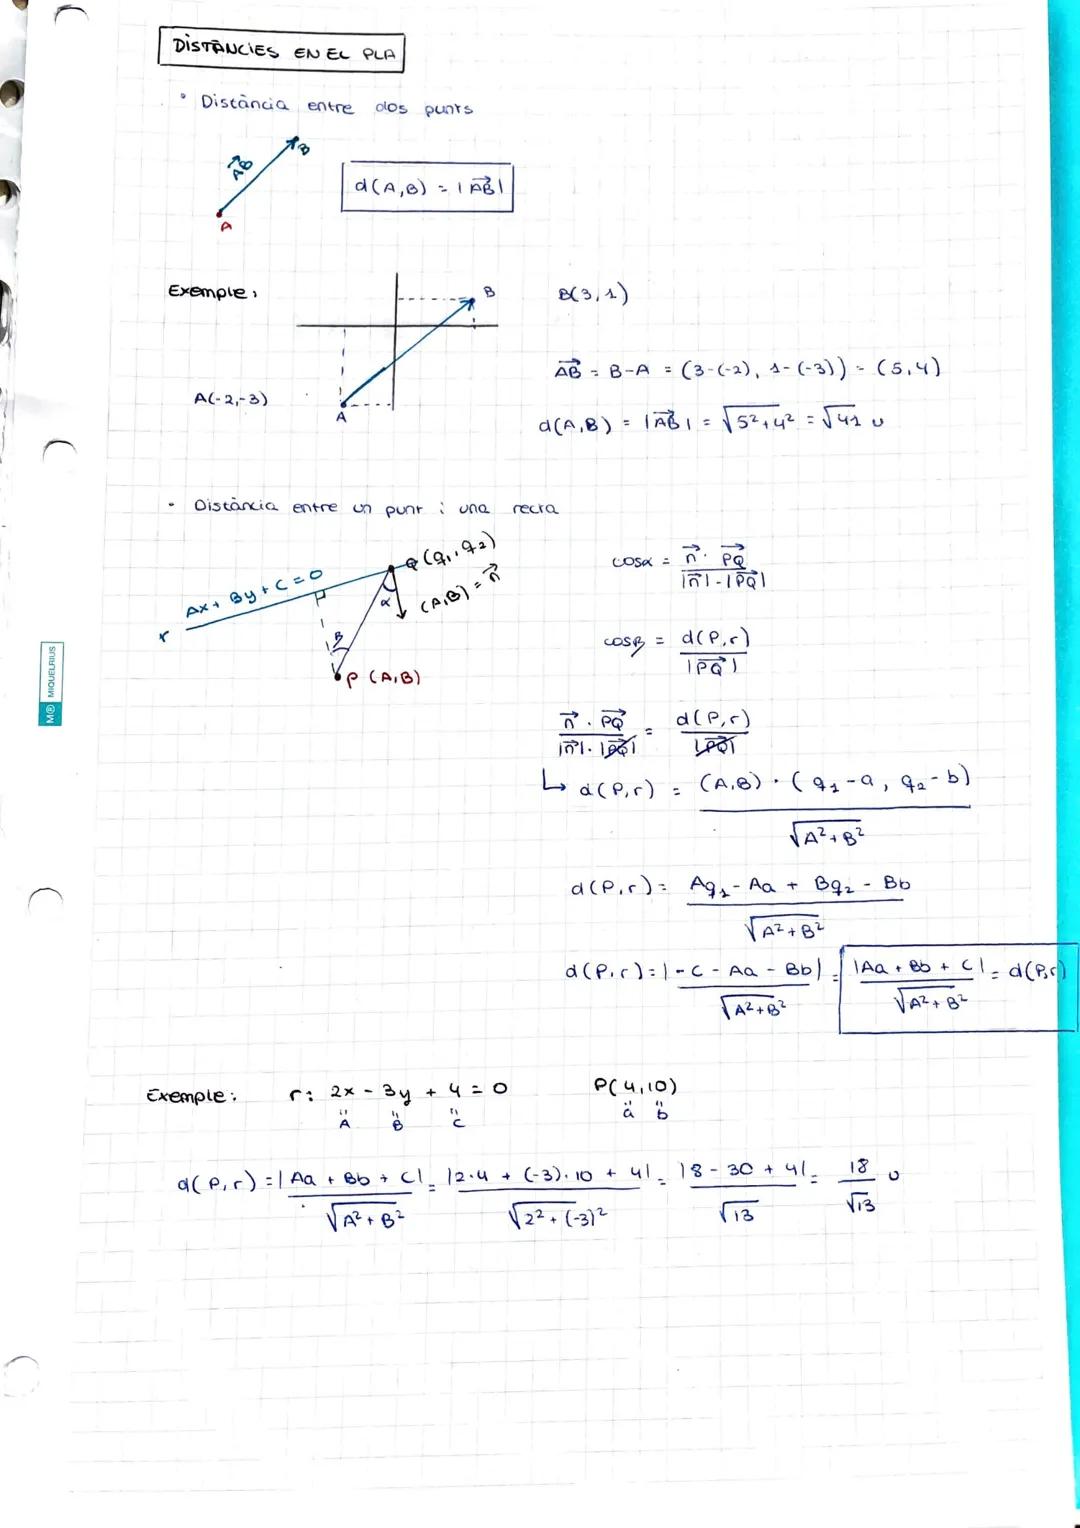 DISTÀNCIES EN EL PLA
• Distància entre dos punts
AB
B
A
d(A,B) = |AB|
Exemple:
B
B(3,1)
AB = B-A = (3-(-2), 1-(-3)) = (5,4)
A(-2,-3)
A
d(A,B) = |AB| = √5²+4² = √41 u
• Distància entre un punt i una recta
Q (q₁,q₂)
Ax + By + C = 0
(A,B) = n
α
r
β
P (A,B)
cosα = n · PQ / |n| · |PQ|
cosβ = d(P,r) / |PQ|
n · PQ / |n| · |PQ| = d(P,r) / |PQ|
↳ d(P,r) = (A,B) · (q₁-a, q₂-b) / √A²+B²
d(P,r) = Aq₁ - Aa + Bq₂ - Bb / √A²+B²
d(P,r) = |-C - Aa - Bb| / √A²+B² = |Aa + Bb + C| / √A²+B² = d(P,r)
Exemple: r: 2x - 3y + 4 = 0 P(4,10)
" " " " "
A B C a b
d(P,r) = |Aa + Bb + C| / √A²+B² = |2·4 + (-3)·10 + 4| / √2²+(-3)² = |8 - 30 + 4| / √13 = 18 / √13 u
M® MIQUELRIUS